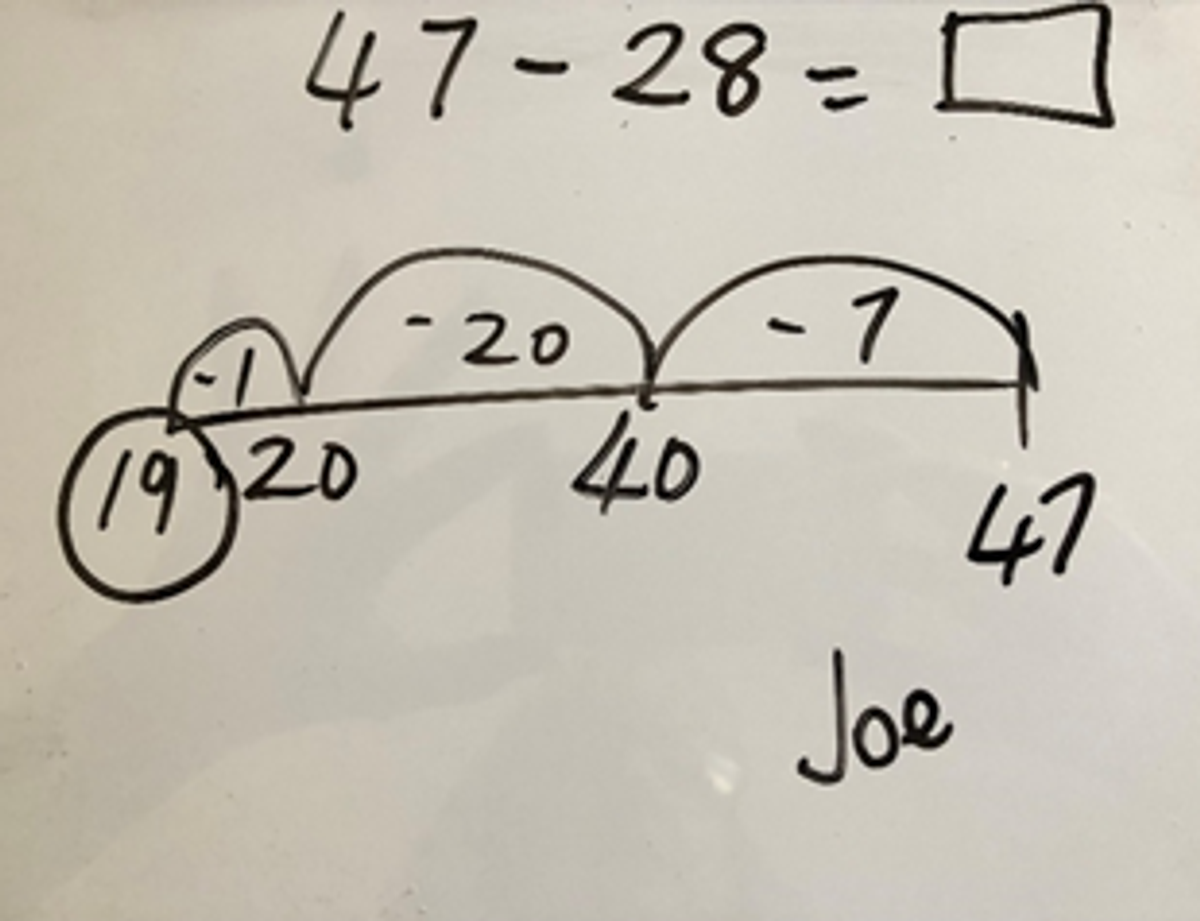 47 - 28 = □
-1 -20 -7
19 20 40 47
Joe